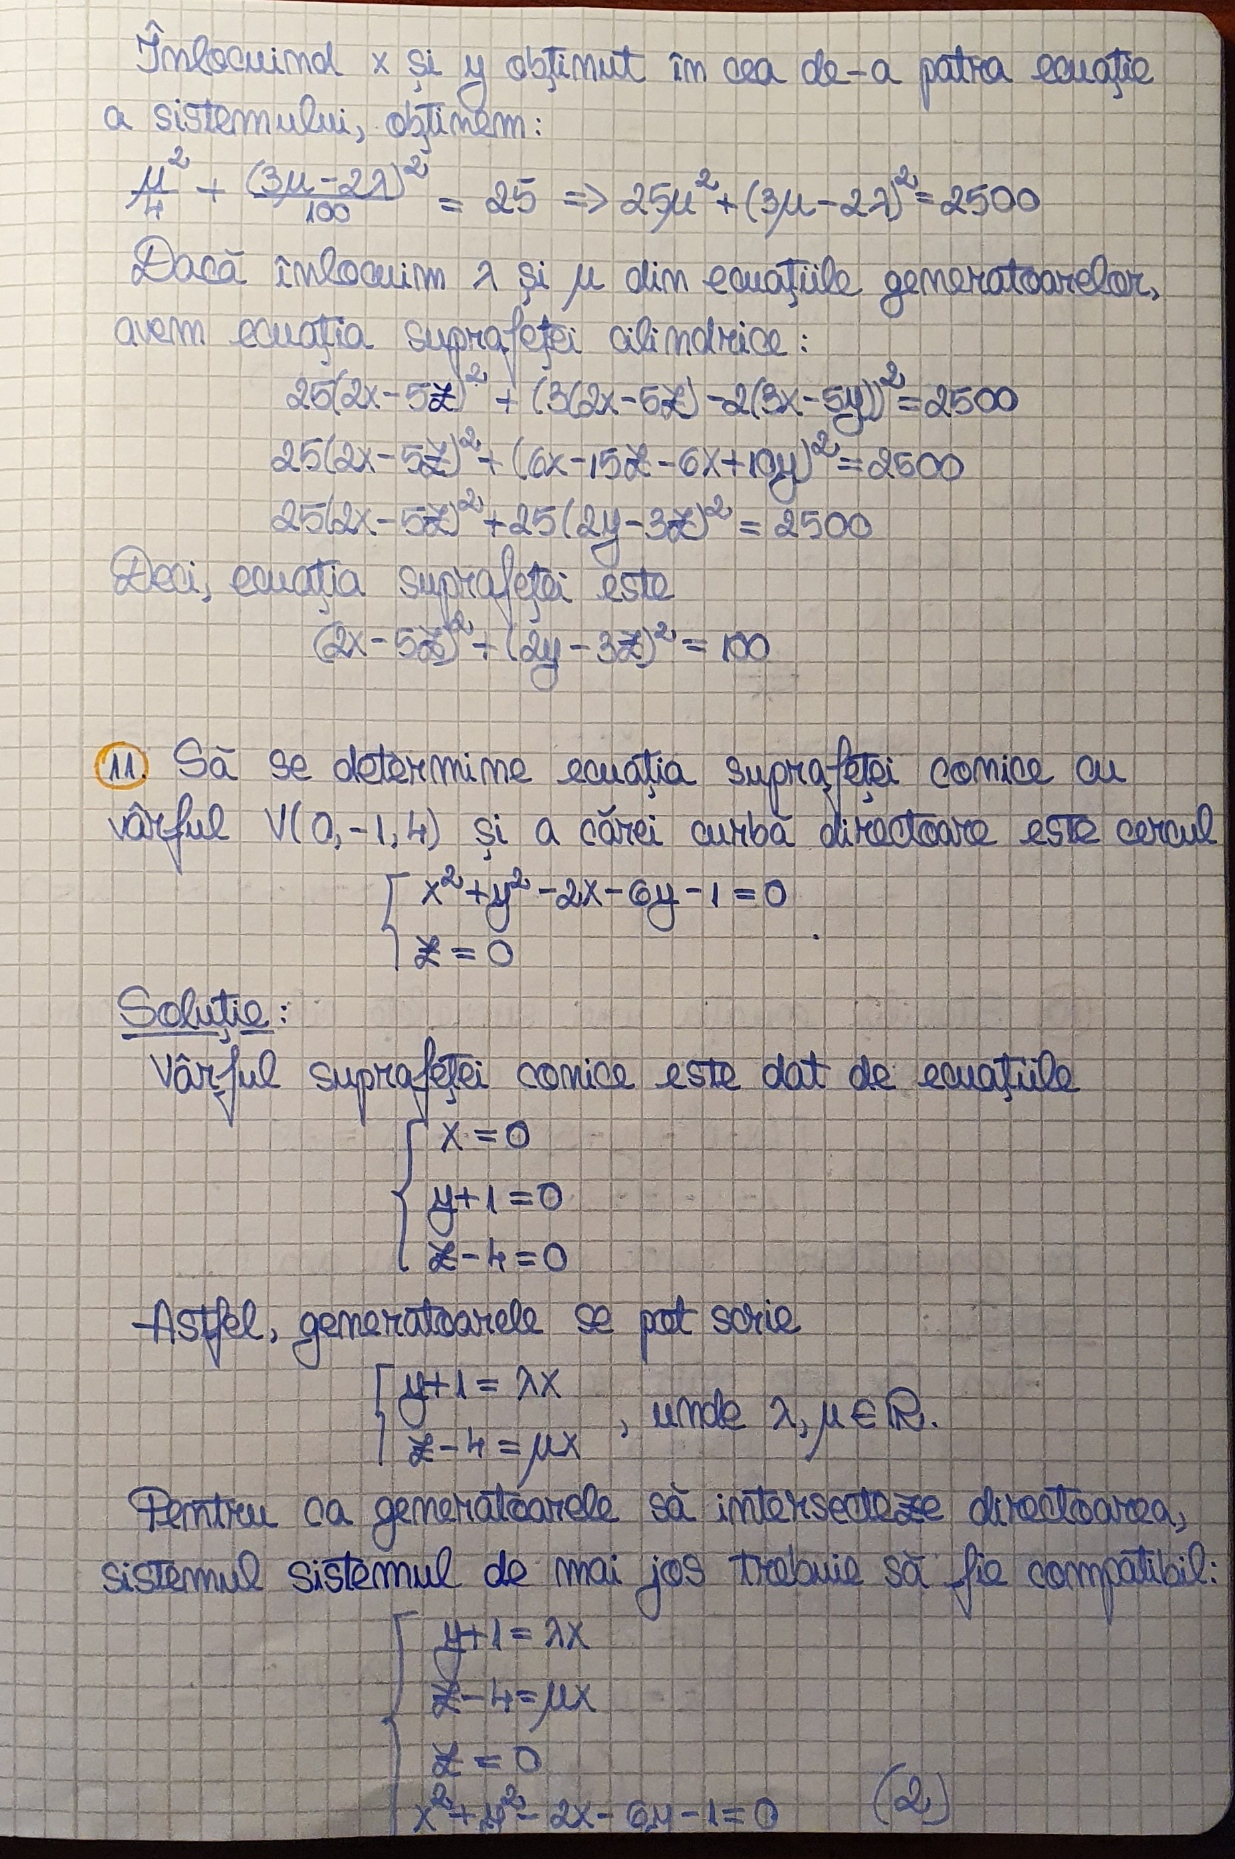 Înlocuind x și y obținut în cea de-a patra ecuație
a sistemului, obținem:
μ²/4 + (3μ-2λ)²/100 = 25 => 25μ² + (3μ-2λ)² = 2500
Dacă înlocuim λ și μ din ecuațiile generatoarelor,
avem ecuația suprafeței cilindrice:
25(2x-5z)² + (3(2x-5z) -2(3x-5y))² = 2500
25(2x-5z)² + (6x-15z-6x+10y)² = 2500
25(2x-5z)² + 25(2y-3z)² = 2500
Deci, ecuația suprafeței este
(2x-5z)² + (2y-3z)² = 100
11. Să se determine ecuația suprafeței conice cu
vârful V(0,-1,4) și a cărei curbă directoare este cercul
{ x²+y²-2x-6y-1=0
z=0
Soluție:
Vârful suprafeței conice este dat de ecuațiile
{ x=0
y+1=0
z-4=0
Astfel, generatoarele se pot scrie
{ y+1=λx
z-4=μx , unde λ, μ∈ℝ.
Pentru ca generatoarele să intersecteze directoarea,
sistemul sistemul de mai jos trebuie să fie compatibil:
{ y+1=λx
z-4=μx
z=0
x²+y²-2x-6y-1=0 (2)